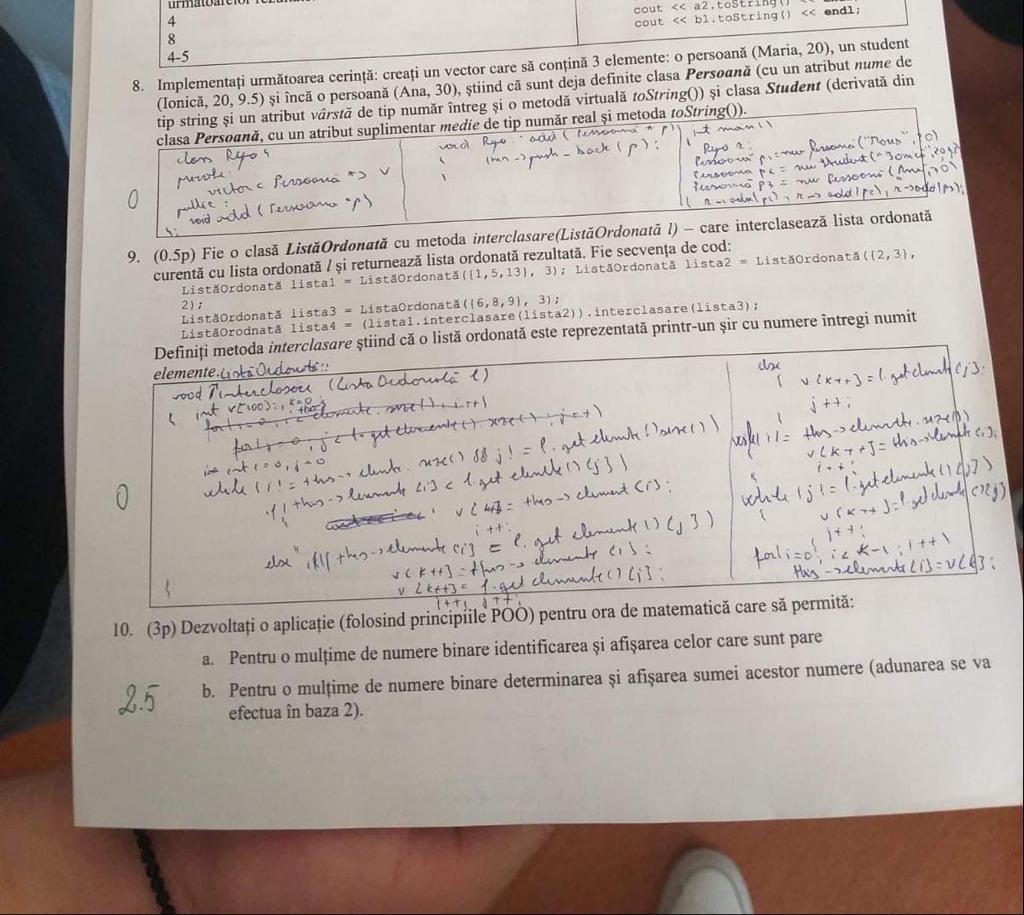 următoarelor
4
8
4-5
cout << a2.toString() << endl;
cout << b1.toString() << endl;
8. Implementați următoarea cerință: creați un vector care să conțină 3 elemente: o persoană (Maria, 20), un student
(Ionică, 20, 9.5) și încă o persoană (Ana, 30), știind că sunt deja definite clasa Persoană (cu un atribut nume de
tip string și un atribut vârstă de tip număr întreg și o metodă virtuală toString()) și clasa Student (derivată din
clasa Persoană, cu un atribut suplimentar medie de tip număr real și metoda toString()).
class Repo {
vector < Persoană *> v
void add (Persoană *p)
};
void Repo:: add (Persoană * p)
push_back (p);
int main()
Repo r;
0
9. (0.5p) Fie o clasă ListăOrdonată cu metoda interclasare(ListăOrdonată l) – care interclasează lista ordonată
curentă cu lista ordonată l și returnează lista ordonată rezultată. Fie secvența de cod:
ListăOrdonată lista1 = ListăOrdonată({1,5,13}, 3); ListăOrdonată lista2 = ListăOrdonată({2,3},
2);
ListăOrdonată lista3 = ListaOrdonată({6,8,9}, 3);
ListăOrodnată lista4 = (lista1.interclasare(lista2)).interclasare(lista3);
Definiți metoda interclasare știind că o listă ordonată este reprezentată printr-un șir cu numere întregi numit
elemente. ListăOrdonată::
void interclasare (Lista Ordonată l)
{ int v[100]; k=0;
int i=0, j=0
while (i != this-> elemente. size() && j != l. get elemente () size())
if (this-> elemente [i] < l. get elemente () [j])
{ v[k++] = this -> element [i];
i++;
else if (this->elemente [i] = l. get elemente () [j])
v[k++] = this-> elemente [i];
v[k++] = l. get elemente () [j];
i++, j++;
}
0
else
{ v[k++] = l. get elemente [j];
j++;
while (i != this->elemente. size())
v[k++] = this->elemente [i];
i++;
while (j != l. get elemente () [j])
{ v[k++] = l. get elemente () [j]
j++;
for(i=0; i<k-1; i++)
this ->elemente [i] = v[k];
10. (3p) Dezvoltați o aplicație (folosind principiile POO) pentru ora de matematică care să permită:
a. Pentru o mulțime de numere binare identificarea și afișarea celor care sunt pare
b. Pentru o mulțime de numere binare determinarea și afișarea sumei acestor numere (adunarea se va
efectua în baza 2).
2.5